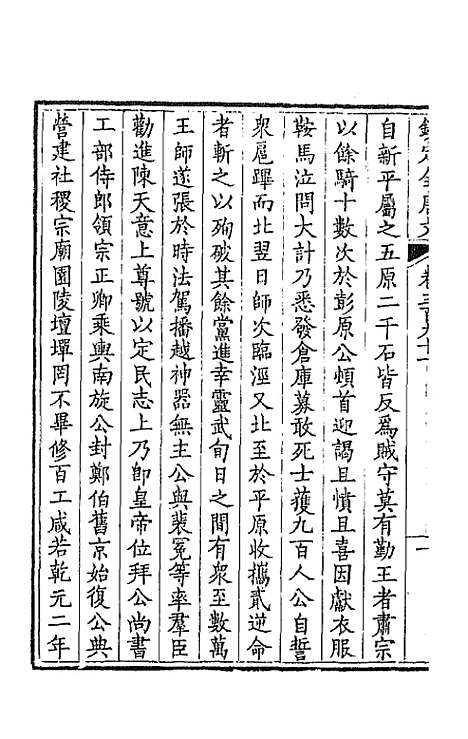 欽定全唐文 卷三百九十一 一
自新平屬之五原二千石皆反爲賊守莫有勤王者肅宗
以餘騎十數次於彭原公頓首迎謁且憤且喜因獻衣服
鞍馬泣問大計乃悉發倉庫募敢死士獲九百人公自誓
衆扈蹕而北翌日師次臨涇又北至於平原收攜貳逆命
者斬之以殉破其餘黨進幸靈武旬日之間有衆至數萬
王師遂張於時法駕播越神器無主公與裴冕等率羣臣
勸進陳天意上尊號以定民志上乃卽皇帝位拜公尚書
工部侍郎領宗正卿乘輿南旋公封鄭伯舊京始復公典
營建社稷宗廟園陵壇墠罔不畢修百工咸若乾元二年